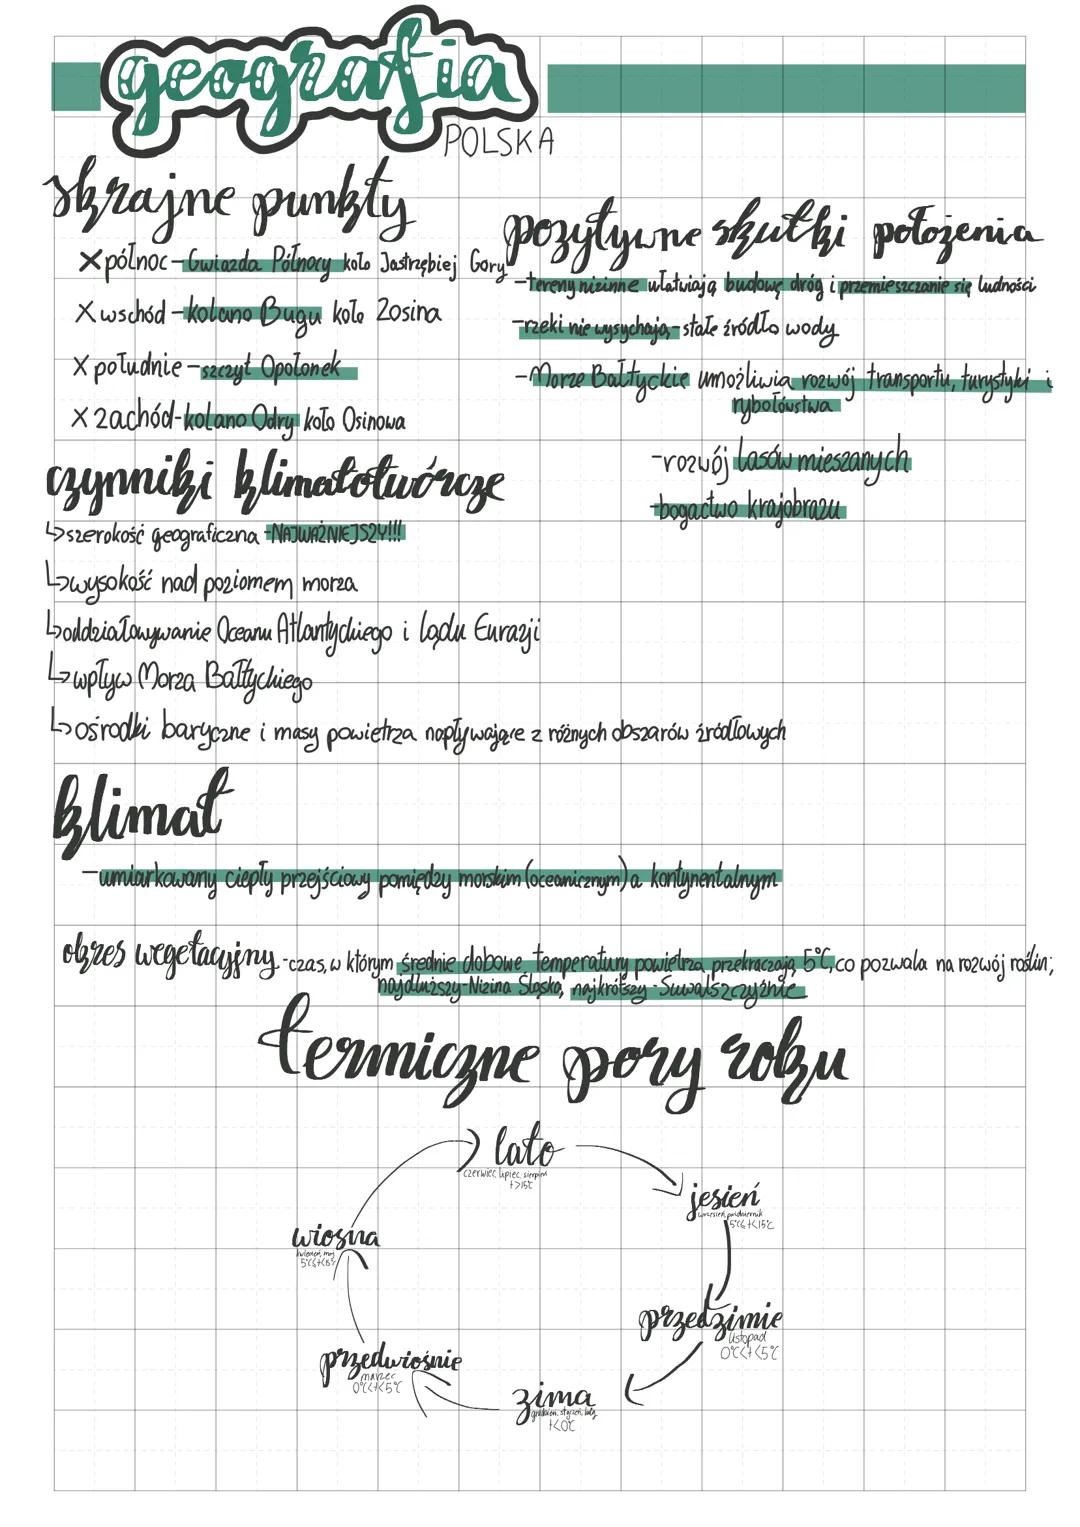 geografia
POLSKA
skrajne punkty
X północ - Gwiazda Północy koło Jastrzębiej Góry
X wschód - kolano Bugu koło Zosina
X południe - szczyt Opołonek
X zachód - kolano Odry koło Osinowa
pozytywne skutki położenia
- tereny nizinne ułatwiają budowę dróg i przemieszczanie się ludności
- rzeki nie wysychają - stałe źródło wody
- Morze Bałtyckie umożliwia rozwój transportu, turystyki i
rybołówstwa
- rozwój lasów mieszanych
- bogactwo krajobrazu
czynniki klimatotwórcze
↳ szerokość geograficzna - NAJWAŻNIEJSZY!!!
↳ wysokość nad poziomem morza
↳ oddziaływanie Oceanu Atlantyckiego i lądu Eurazji
↳ wpływ Morza Bałtyckiego
↳ ośrodki baryczne i masy powietrza napływające z różnych obszarów źródłowych
klimat
- umiarkowany ciepły przejściowy pomiędzy morskim (oceanicznym) a kontynentalnym
okres wegetacyjny - czas, w którym średnie dobowe temperatury powietrza przekraczają 5°C, co pozwala na rozwój roślin;
najdłuższy - Nizina Śląska, najkrótszy - Suwalszczyźnie
termiczne pory roku
lato
czerwiec, lipiec, sierpień
t>15°C
jesień
wrzesień, październik
5°C≤t<15°C
przedzimie
listopad
0°C<t<5°C
zima
grudzień, styczeń, luty
t<0°C
przedwiośnie
marzec
0°C<t<5°C
wiosna
kwiecień, maj